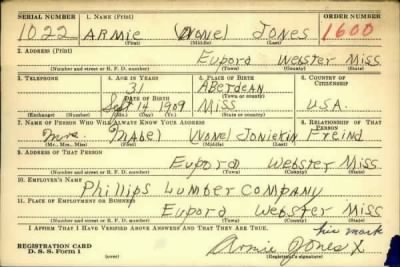 SERIAL NUMBER 1. NAME (Print) ORDER NUMBER
1022 ARMIE Wonel JONES 1600
(First) (Middle) (Last)
2. ADDRESS (Print)
Eupora Webster Miss
(Number and street or R. F. D. number) (Town) (County) (State)
3. TELEPHONE 4. AGE IN YEARS 5. PLACE OF BIRTH 6. COUNTRY OF CITIZENSHIP
31 Aberdean
DATE OF BIRTH (Town or county)
Sept 14 1909 Miss U.S.A.
(Exchange) (Number) (Mo.) (Day) (Yr.) (State or country)
7. NAME OF PERSON WHO WILL ALWAYS KNOW YOUR ADDRESS 8. RELATIONSHIP OF THAT PERSON
Mrs. Mabel Wonel Freind
(Mr., Mrs., Miss) (First) (Middle) (Last)
9. ADDRESS OF THAT PERSON
Eupora Webster Miss
(Number and street or R. F. D. number) (Town) (County) (State)
10. EMPLOYER'S NAME
Phillips Lumber Company
11. PLACE OF EMPLOYMENT OR BUSINESS
Eupora Webster Miss
(Number and street or R. F. D. number) (Town) (County) (State)
I AFFIRM THAT I HAVE VERIFIED ABOVE ANSWERS AND THAT THEY ARE TRUE.
his mark
REGISTRATION CARD Armie Jones X
D. S. S. FORM 1 (Registrant's signature)